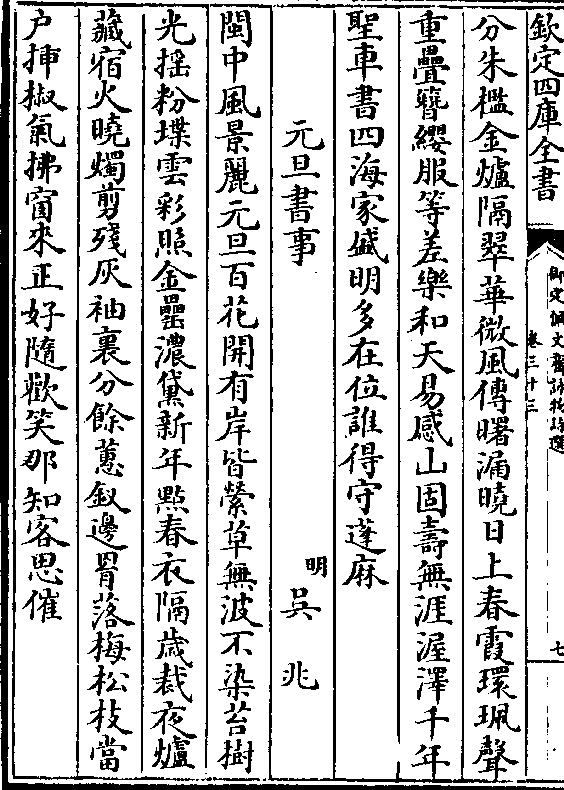 欽定四庫全書
御定佩文齋詠物詩選
卷三十三
七
分朱檻金爐隔翠華微風傳曙漏曉日上春霞環珮聲
重疊簪纓服等差樂和天易感山固壽無涯渥澤千年
聖車書四海家盛明多在位誰得守蓬麻
元旦書事
明 吳兆
閩中風景麗元旦百花開有岸皆縈草無波不染苔樹
光摇粉堞雲彩照金罍濃黛新年點春衣隔歲裁夜爐
藏宿火曉燭剪殘灰袖裏分餘蕙釵邊罥落梅松枝當
户揷椒氣拂窗來正好隨歡笑那知客思催